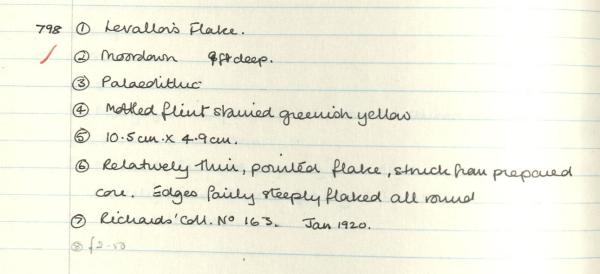 798 ① Levallois Flake.
② Moordown 9ft deep.
③ Palaeolithic
④ Mottled flint stained greenish yellow
⑤ 10.5cm. x 4.9cm.
⑥ Relatively thin, pointed flake, struck from prepared
core. Edges fairly steeply flaked all round
⑦ Richards' Coll. No 163. Jan 1920.
⑧ £2.50